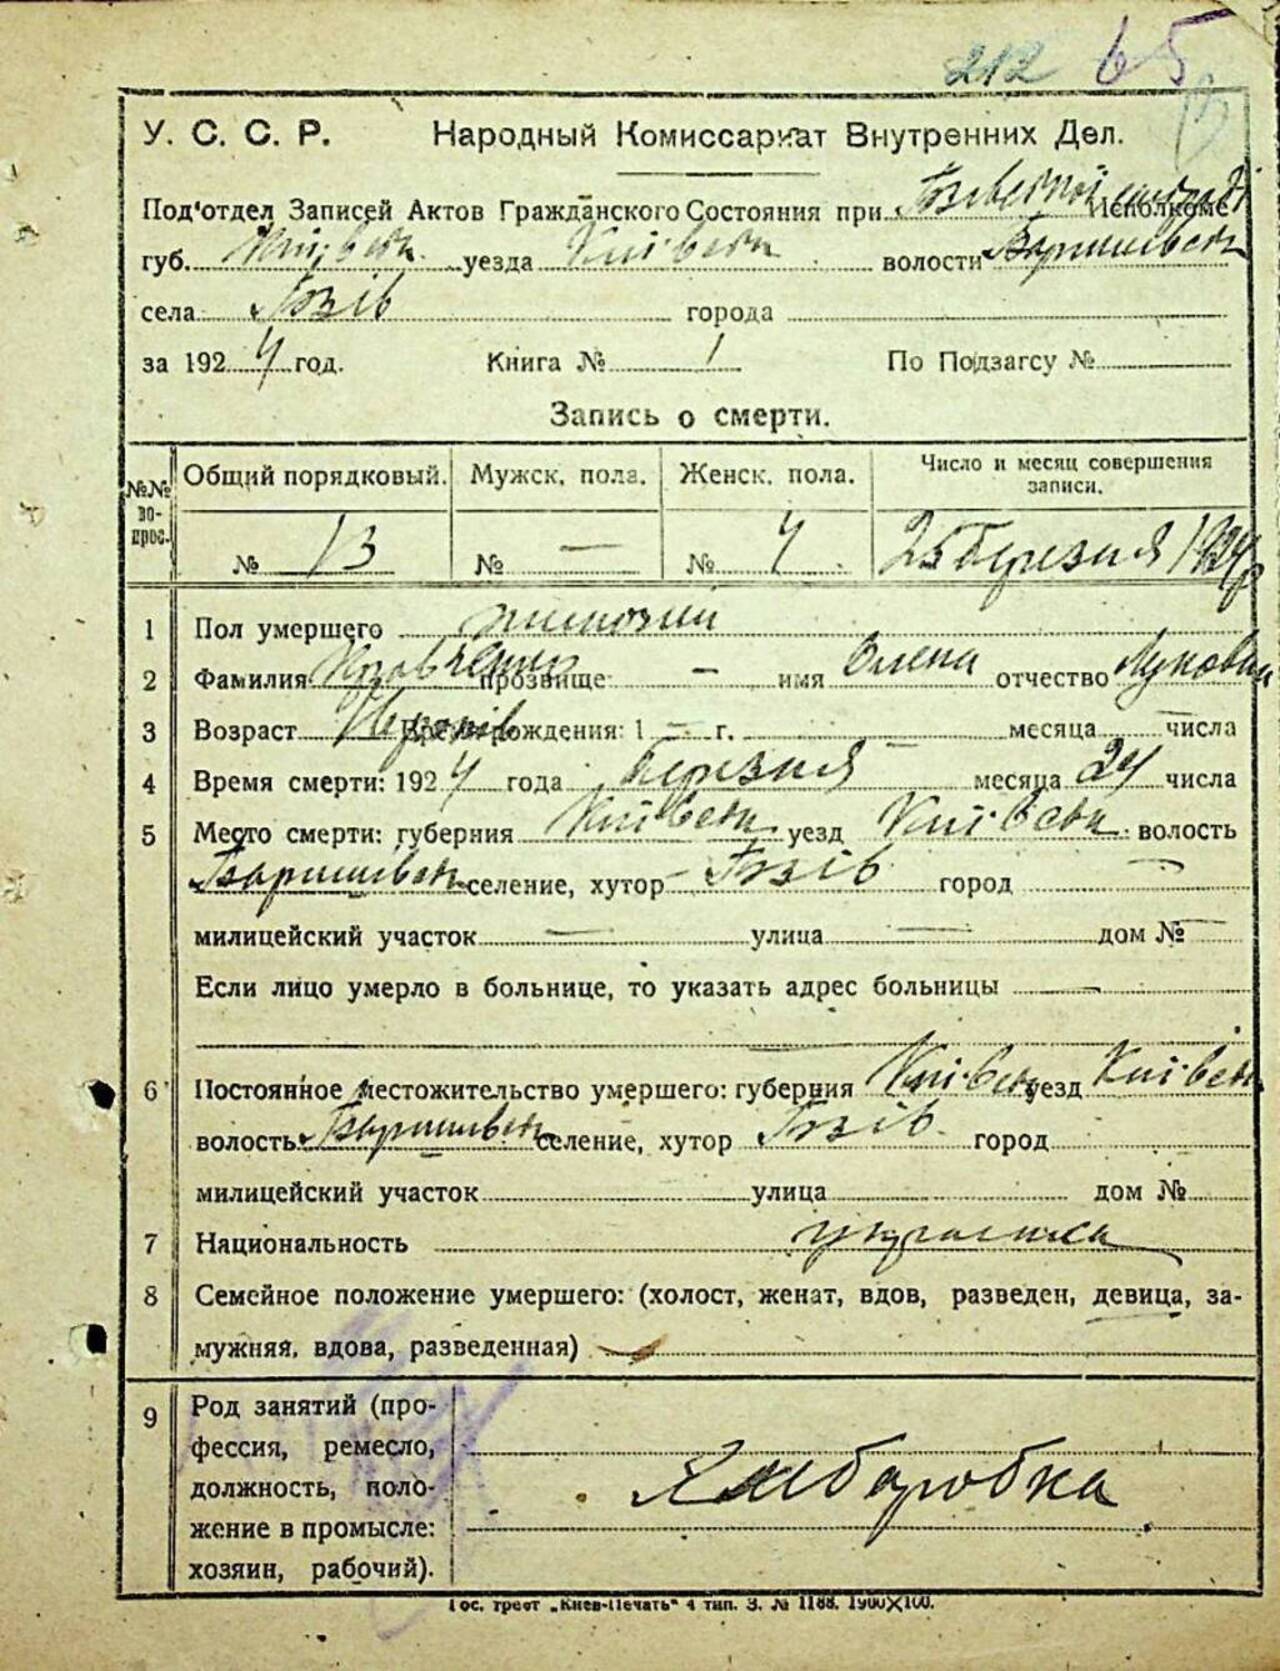 212 65
У. С. С. Р. Народный Комиссариат Внутренних Дел.
Под'отдел Записей Актов Гражданского Состояния при Исполкоме
губ. Київськ. уезда Київськ волости Баришівськ
села Бзів города
за 1924 год. Книга № 1 По Подзагсу №
Запись о смерти.
№№ вопрос. Общий порядковый. Мужск. пола. Женск. пола. Число и месяц совершения записи.
№ 13 № — № 7 25 березня 1924 р
1 Пол умершего жиночий
2 Фамилия прозвище: — имя Олена отчество
3 Возраст Время рождения: 1 — г. — месяца — числа
4 Время смерти: 1924 года березня месяца 24 числа
5 Место смерти: губерния Київськ уезд Київськ. волость
Баришівськ селение, хутор Бзів город —
милицейский участок — улица — дом № —
Если лицо умерло в больнице, то указать адрес больницы —
6 Постоянное местожительство умершего: губерния Київськ уезд Київськ
волость Баришівськ селение, хутор Бзів город
милицейский участок улица дом №
7 Национальность украинка
8 Семейное положение умершего: (холост, женат, вдов, разведен, девица, за-
мужняя, вдова, разведенная)
9 Род занятий (про-
фессия, ремесло,
должность, поло-
жение в промысле:
хозяин, рабочий).
Хлиборобка
Гос. трест „Киев-Печать“ 4 тип. З. № 1188. 1900Х100.